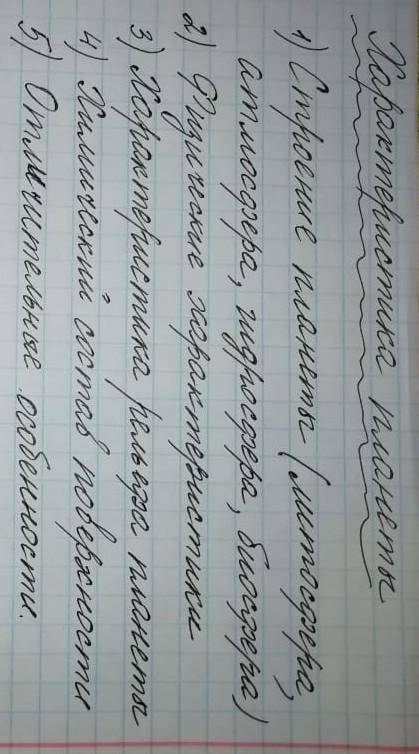 Характеристика планеты
1) Строение планеты (литосфера,
атмосфера, гидросфера, биосфера)
2) Физические характеристики
3) Характеристика рельефа планеты
4) Химический состав поверхности
5) Отличительные особенности.